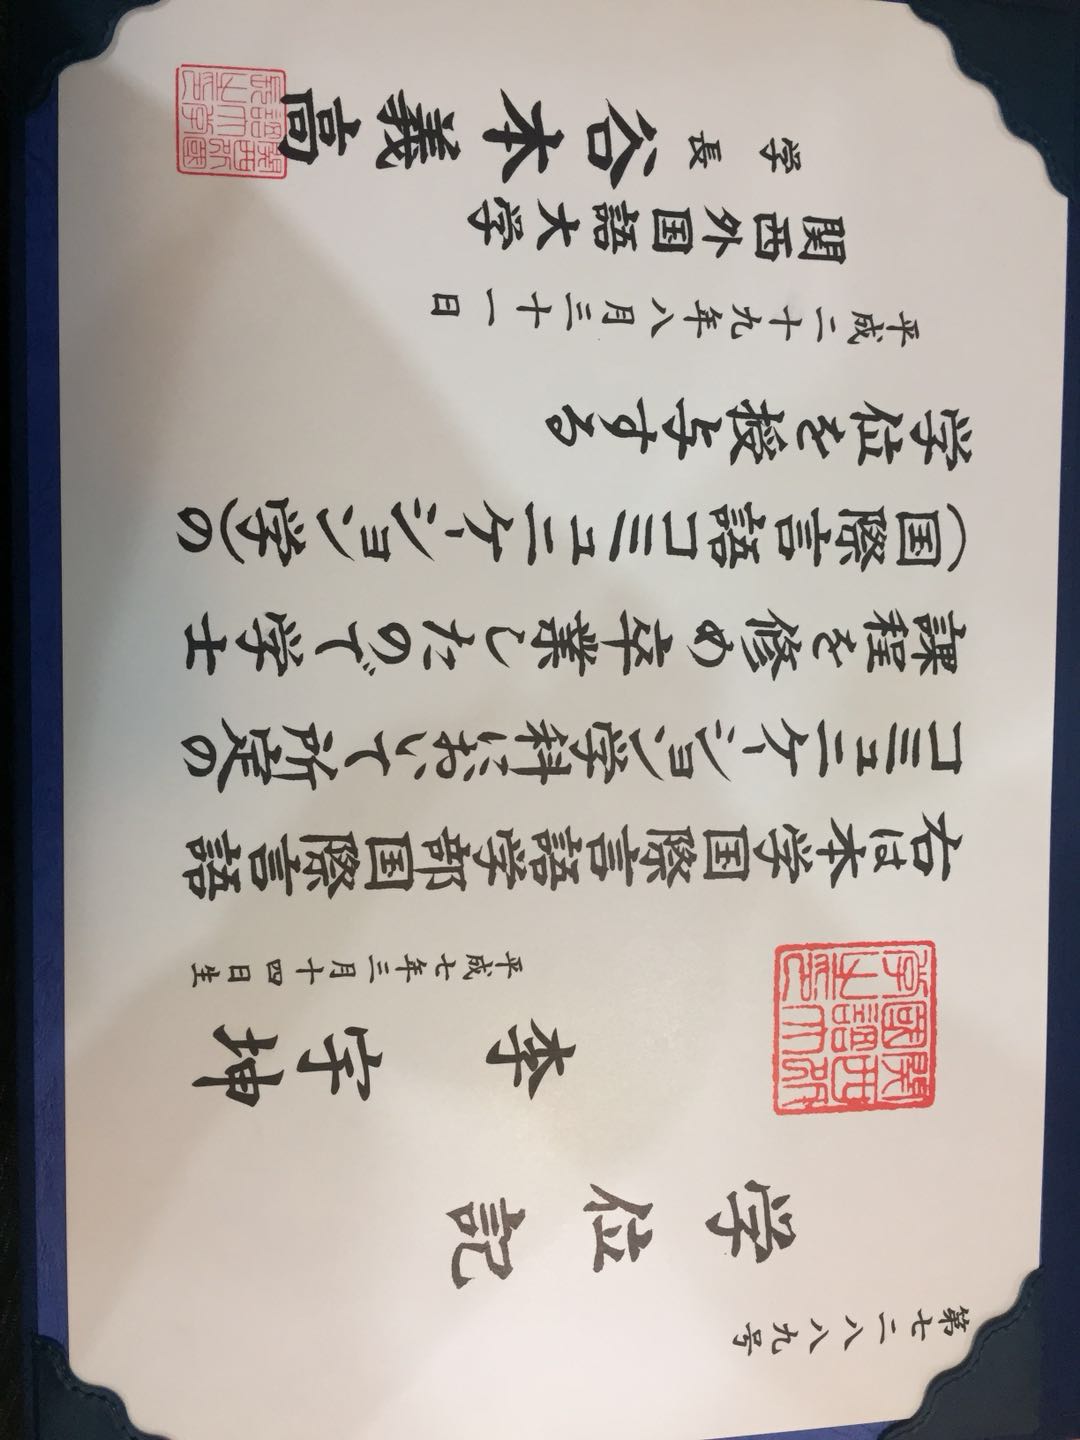 第七二八八九号
学位記
李宇坤
平成七年三月十四日生
右は本学国際言語学部国際言語
コミュニケーション学科において所定の
課程を修め卒業したので学士
(国際言語コミュニケーション学)の
学位を授与する
平成二十九年八月三十一日
関西外国語大学
学長 谷本義高
關西外國語大學之印
關西外國語大學長之印